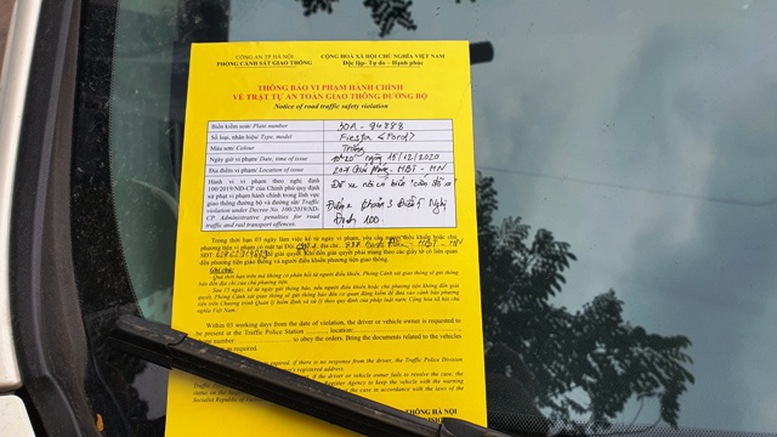 CÔNG AN TP HÀ NỘI
PHÒNG CẢNH SÁT GIAO THÔNG
CỘNG HOÀ XÃ HỘI CHỦ NGHĨA VIỆT NAM
Độc lập- Tự do – Hạnh phúc
THÔNG BÁO VI PHẠM HÀNH CHÍNH
VỀ TRẬT TỰ AN TOÀN GIAO THÔNG ĐƯỜNG BỘ
Notice of road traffic safety violation
Biển kiểm soát/ Plate number 30A - 94888
Số loại, nhãn hiệu/ Type, model Fiesta <Ford>
Màu sơn/ Colour Trắng
Ngày giờ vi phạm/ Date, time of issue 10h20 ngày 15/12/2020
Địa điểm vi phạm/ Location of issue Giải Phóng - HBT - HN
Hành vi vi phạm theo nghị định
100/2019/NĐ-CP của Chính phủ quy định
xử phạt vi phạm hành chính trong lĩnh vực
giao thông đường bộ và đường sắt/ Traffic
violation under Decree No. 100/2019/NĐ-
CP Administrative penalties for road
traffic and rail transport offences.
Đỗ xe nơi có biển "cấm đỗ xe"
Điểm e khoản 3 Điều 5 Nghị
Định 100
Trong thời hạn 03 ngày làm việc kể từ ngày vi phạm, yêu cầu người điều khiển hoặc chủ
phương tiện vi phạm có mặt tại Đội địa chỉ: - HBT - HN
SĐT: để giải quyết. Khi đến giải quyết phải mang theo các giấy tờ có liên quan
đến phương tiện giao thông và người điều khiển phương tiện giao thông.
Ghi chú:
- Quá thời hạn trên mà không có phản hồi từ người điều khiển, Phòng Cảnh sát giao thông sẽ gửi thông
báo đến địa chỉ của chủ phương tiện.
- Sau 15 ngày, kể từ ngày gửi thông báo, nếu người điều khiển hoặc chủ phương tiện không đến giải
quyết, Phòng Cảnh sát giao thông sẽ gửi thông báo đến cơ quan đăng kiểm để đưa vào cảnh báo phương
tiện trên Chương trình Quản lý kiểm định và xử lý theo quy định của pháp luật nước Cộng hòa xã hội chủ
nghĩa Việt Nam./
Within 03 working days from the date of violation, the driver or vehicle owner is requested to
be present at the Traffic Police Station ........., location:
phone number to obey the orders. Bring the documents related to the vehicles
as required.
expired, if there is no response from the driver, the Traffic Police Division
registered address.
if the driver or vehicle owner fails to resolve the case, the
Traffic Register Agency to keep the vehicle with the warning
status on the case in accordance with the laws of the
Socialist Republic of
THÔNG HÀ NỘI